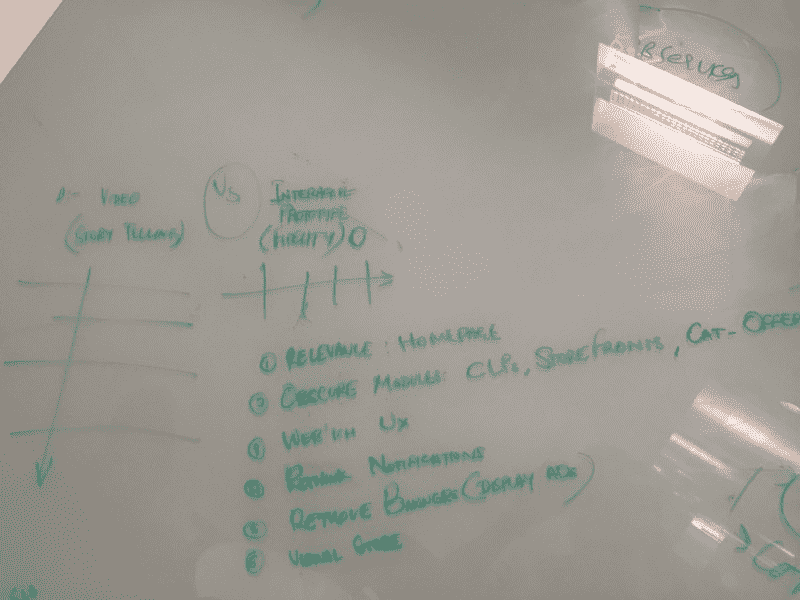 VIDEO
(STORY TELLING)
VS
INTERACTIVE
PROTOTYPE
(FIDELITY)
① RELEVANCE: HOMEPAGE
② OBSCURE MODULES: CLPs, STOREFRONTS, CAT-OFFER
③ UX
④ RETHINK NOTIFICATIONS
⑤ REMOVE BANNERS (DISPLAY ADS)
⑥ VISUAL STORE